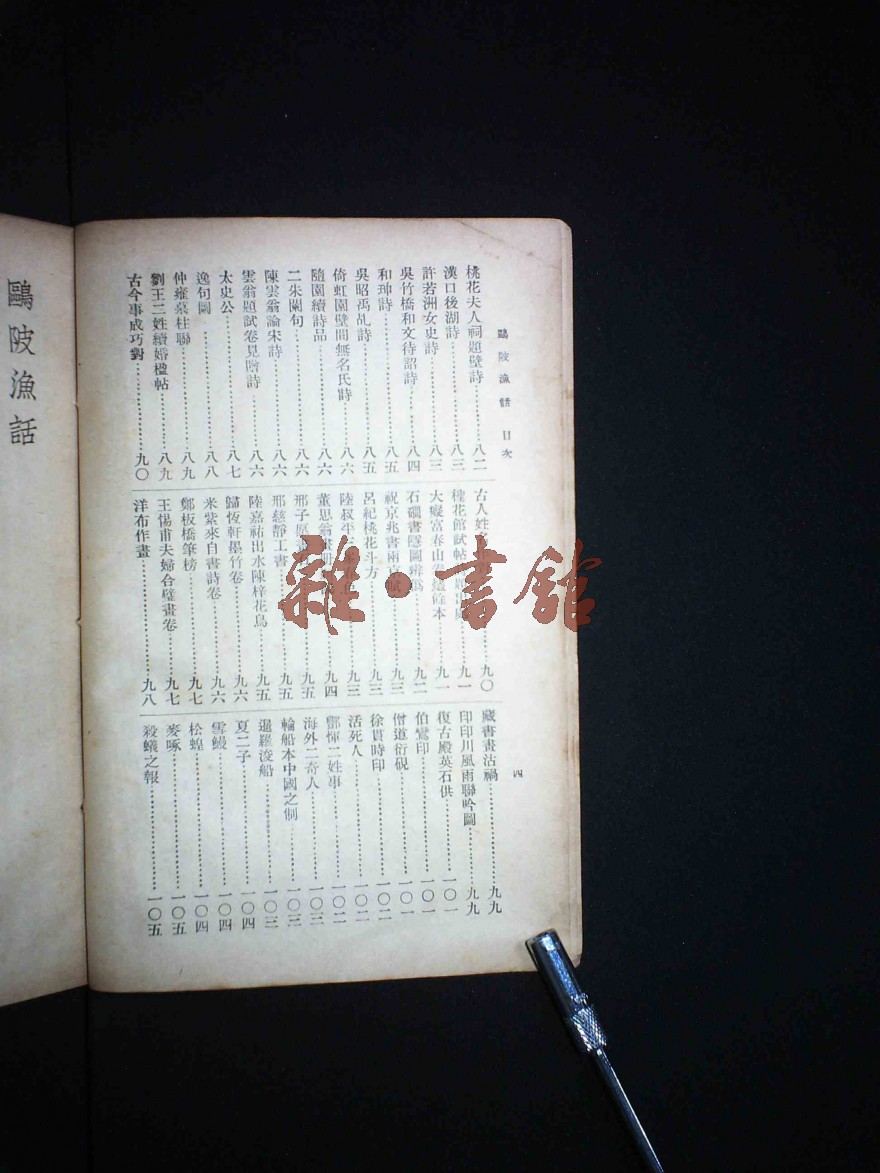 鷗陂漁話 目次
四
桃花夫人祠題壁詩…………八二
漢口後湖詩…………八三
許若洲女史詩…………八三
吳竹橋和文待詔詩…………八四
和珅詩…………八五
吳昭禹乩詩…………八五
倚虹園壁間無名氏詩…………八六
隨園續詩品…………八六
二朱闈句…………八六
陳雲翁論宋詩…………八六
雲翁題試卷見贈詩…………八六
太史公…………八七
逸句圖…………八八
仲雍墓柱聯…………八九
劉王二姓續婚楹帖…………八九
古今事成巧對…………九〇
古人姓…………九〇
桃花館試帖…………九一
大癡富春山卷燼餘本…………九一
石礀書隱圖辨…………九二
祝京兆書兩…賦…………九三
呂紀桃花斗方…………九三
陸叔平…………九三
董思翁…冊…………九四
邢子愿…………九五
邢慈靜工書…………九五
陸嘉祐出水陳梓花鳥…………九五
歸恆軒墨竹卷…………九六
米紫來自書詩卷…………九六
鄭板橋筆榜…………九七
王惕甫夫婦合璧畫卷…………九七
洋布作畫…………九八
藏書畫沽禍…………九九
印印川風雨聯吟圖…………九九
復古殿英石供…………一〇一
伯鸞印…………一〇一
僧道衍硯…………一〇一
徐貫時印…………一〇二
活死人…………一〇二
酆惲二姓事…………一〇二
海外二奇人…………一〇三
輪船本中國之制…………一〇三
暹羅浚船…………一〇三
夏二子…………一〇四
雪鰻…………一〇四
松蝗…………一〇四
麥啄…………一〇五
殺蟻之報…………一〇五
鷗陂漁話
雜·書館